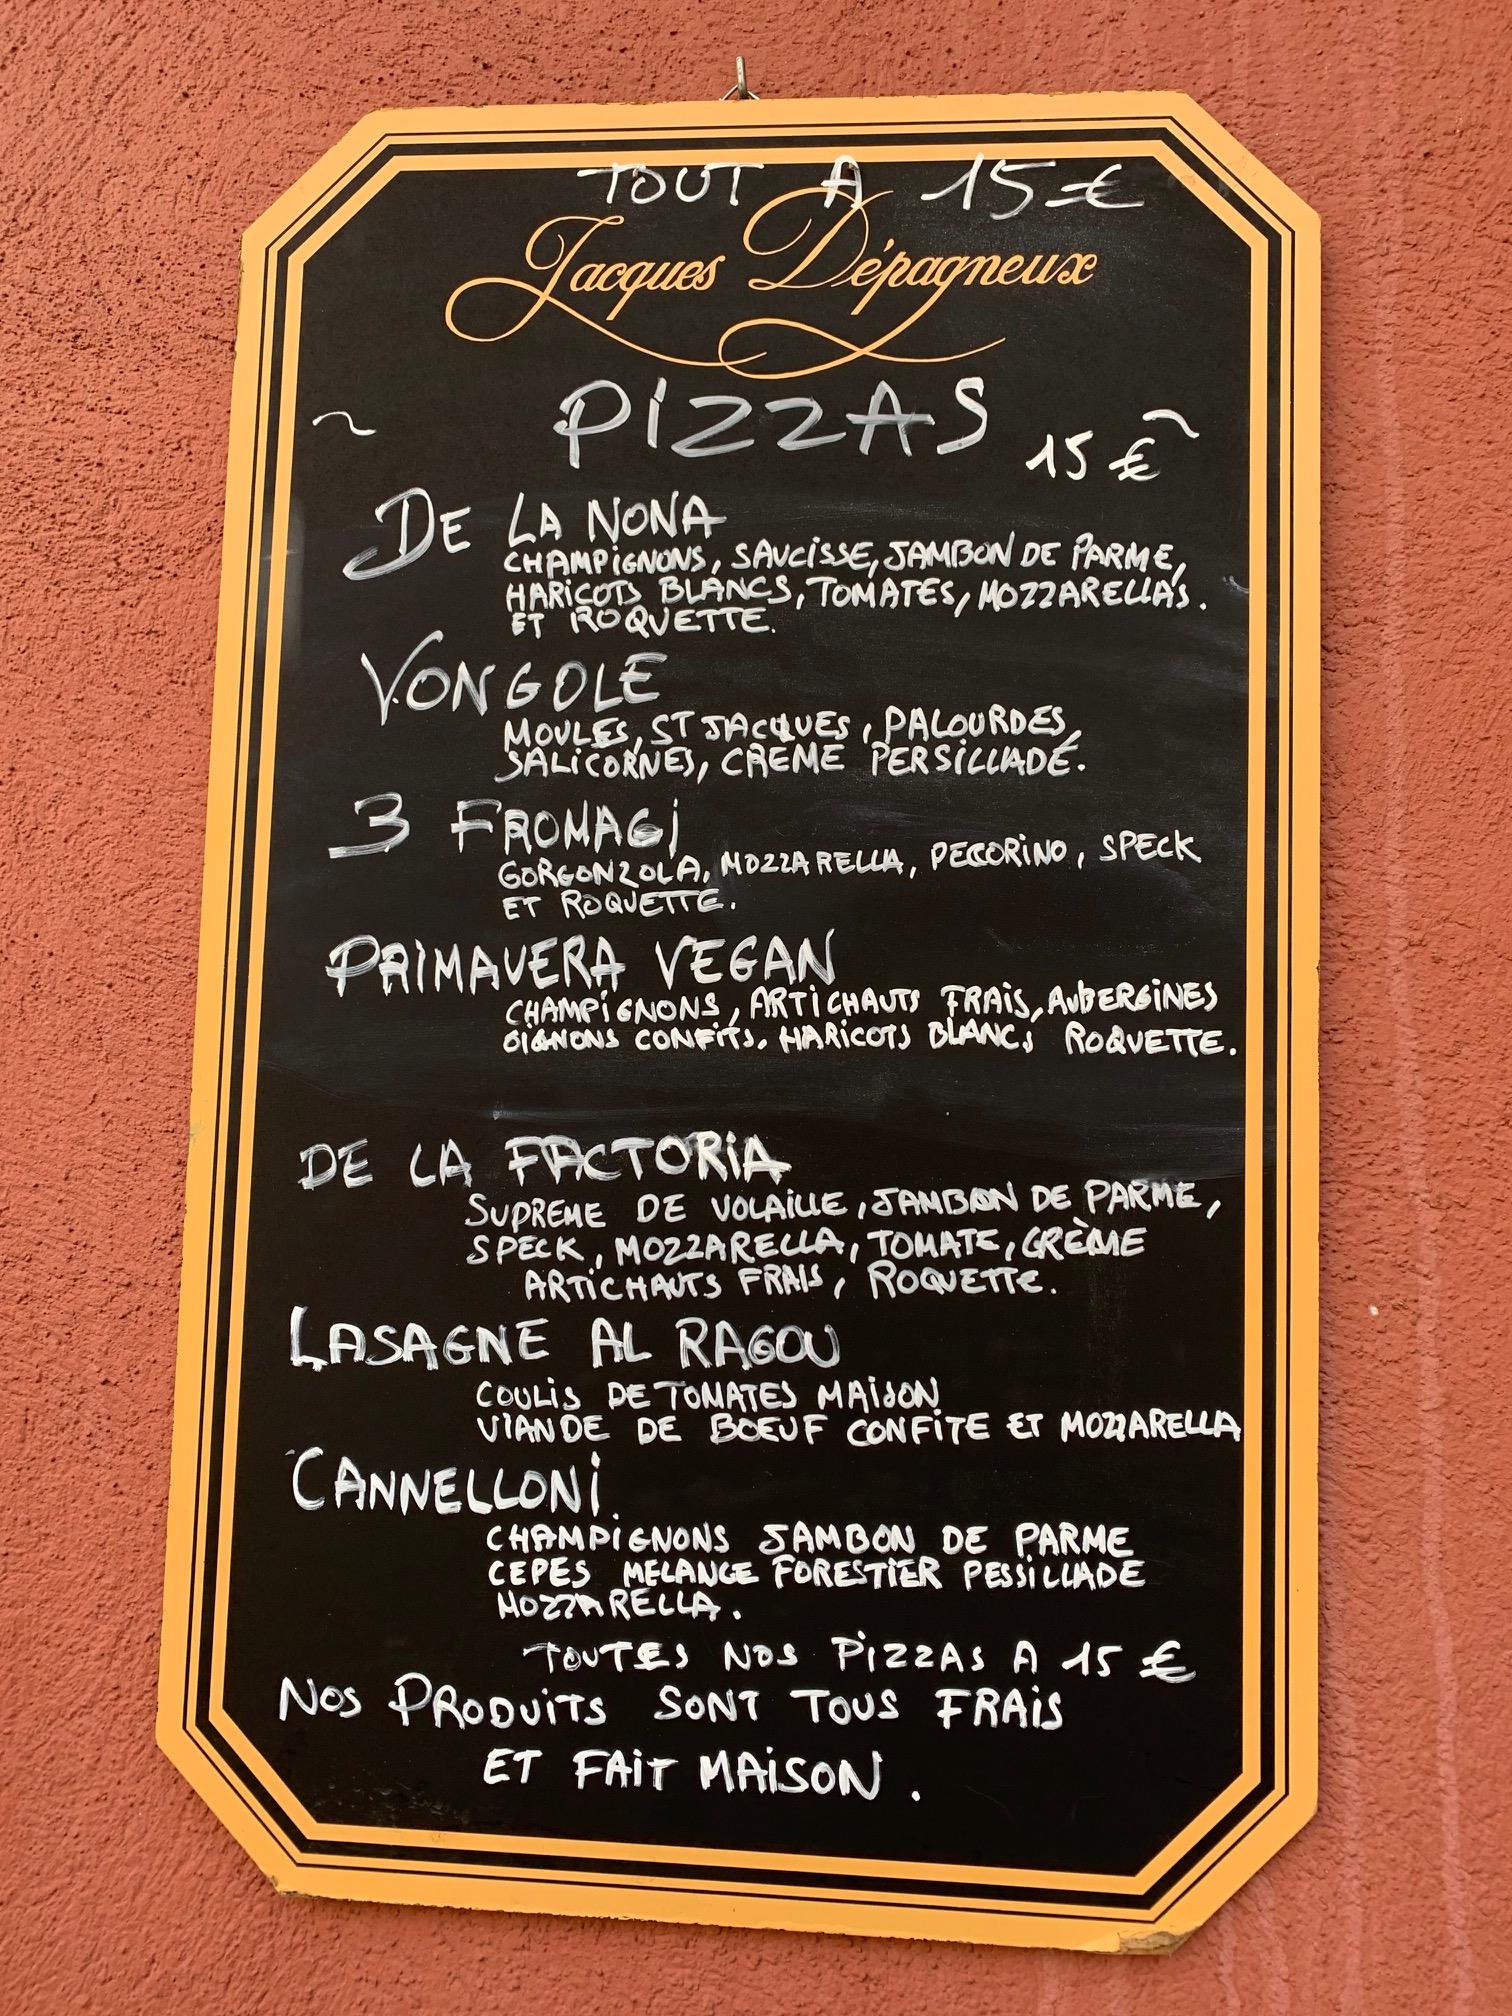 TOUT A 15 €
Jacques Dépagneux
~ PIZZAS 15 € ~
DE LA NONA
CHAMPIGNONS, SAUCISSE, JAMBON DE PARME,
HARICOTS BLANCS, TOMATES, MOZZARELLAS.
ET ROQUETTE.
VONGOLE
MOULES, ST JACQUES, PALOURDES,
SALICORNES, CREME PERSILLADÉ.
3 FROMAGI
GORGONZOLA, MOZZARELLA, PECORINO, SPECK
ET ROQUETTE.
PRIMAVERA VEGAN
CHAMPIGNONS, ARTICHAUTS FRAIS, AUBERGINES
OIGNONS CONFITS, HARICOTS BLANCS ROQUETTE.
DE LA FACTORIA
SUPREME DE VOLAILLE, JAMBON DE PARME,
SPECK, MOZZARELLA, TOMATE, CRÈME
ARTICHAUTS FRAIS, ROQUETTE.
LASAGNE AL RAGOU
COULIS DE TOMATES MAISON
VIANDE DE BOEUF CONFITE ET MOZZARELLA
CANNELLONI
CHAMPIGNONS JAMBON DE PARME
CEPES MELANGE FORESTIER PESSILLADE
MOZZARELLA.
TOUTES NOS PIZZAS A 15 €
NOS PRODUITS SONT TOUS FRAIS
ET FAIT MAISON.